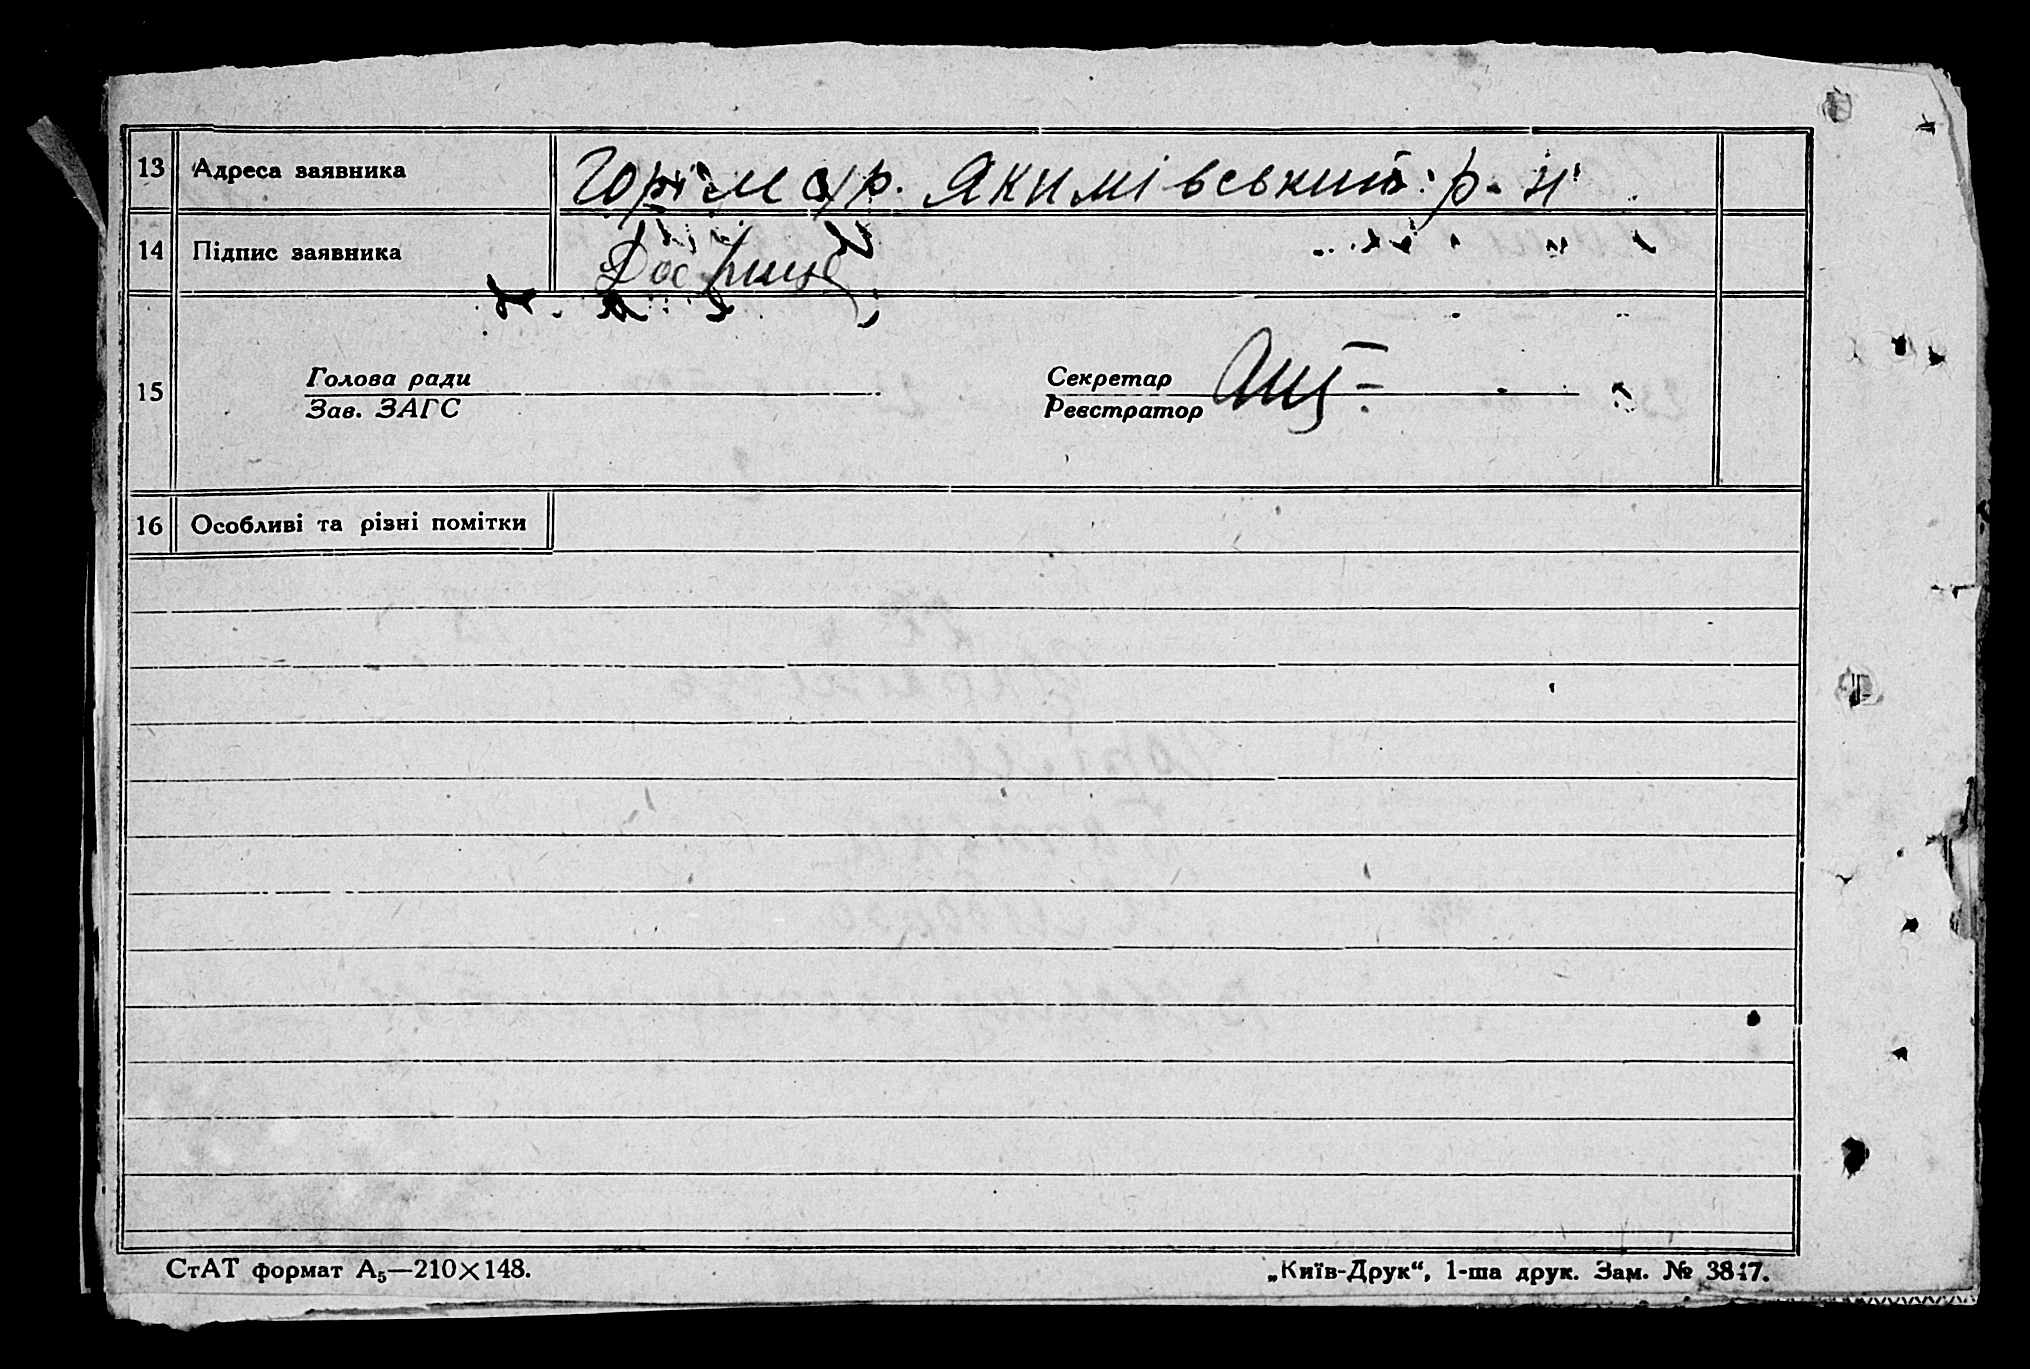 13 Адреса заявника Якимівський р-н
14 Підпис заявника
15 Голова ради Секретар
Зав. ЗАГС Реєстратор
16 Особливі та різні помітки
СтАТ формат А₅—210×148. „Київ-Друк“, 1-ша друк. Зам. № 3847.